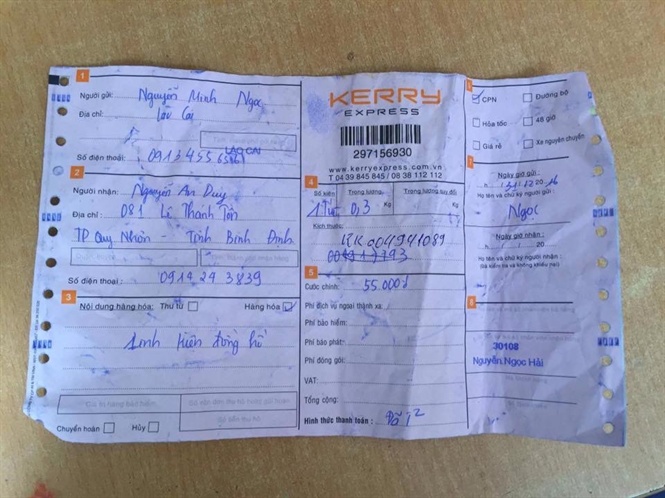 1
Người gửi: Nguyễn Minh Ngọc
Địa chỉ: Lào Cai
LÀO CAI
Số điện thoại: 0913455
2
Người nhận: Nguyễn An Duy
Địa chỉ: 081 Lê Thanh Tôn
TP Quy Nhơn - Tỉnh Bình Định
Số điện thoại: 0914 24 3839
3
Nội dung hàng hóa: Thư từ Hàng hóa
Linh kiện đồng hồ
Chuyển hoàn Hủy
KERRY
EXPRESS
297156930
www.kerryexpress.com.vn
T 04 39 845 845 / 08 38 112 112
4
Số kiện Trọng lượng Trọng lượng quy đổi
0,3 Kg Kg
Kích thước:
KK004941089
5
Cước chính: 55.000đ
Phí dịch vụ ngoại thành xa:
Phí bảo hiểm:
Phí báo phát:
Phí đóng gói:
VAT:
Tổng cộng:
Hình thức thanh toán:
CPN Đường bộ
Hỏa tốc 48 giờ
Giá rẻ Xe nguyên chuyến
Ngày giờ gửi:
Họ tên và chữ ký người gửi:
Ngọc
Ngày giờ nhận:
20
Họ tên và chữ ký người nhận:
30108
Nguyễn Ngọc Hải